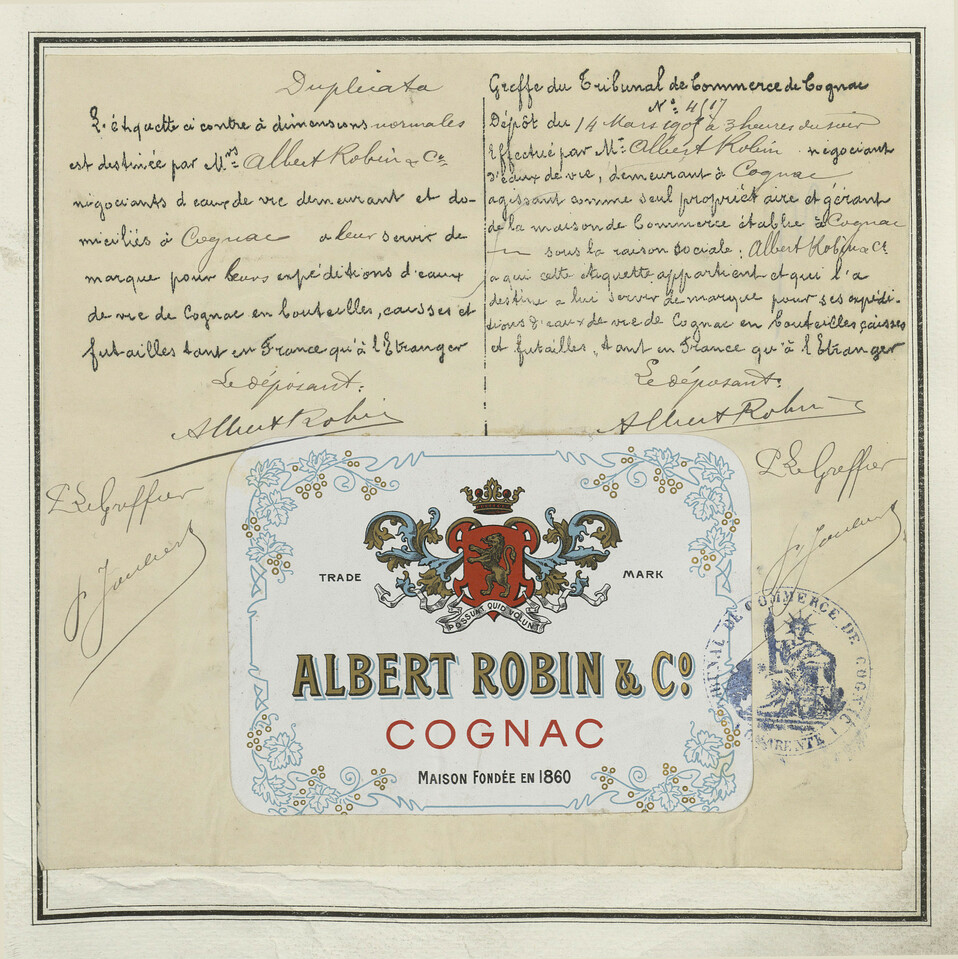 Duplicata
L'étiquette ci contre à dimensions normales
est destinée par Mrs Albert Robin & Cie
négociants d'eaux de vie demeurant et do-
miciliés à Cognac a leur servir de
marque pour leurs expéditions d'eaux
de vie de Cognac en bouteilles, caisses et
futailles tant en France qu'à l'Etranger
Le déposant:
Albert Robin
P. Le Greffier
Greffe du Tribunal de Commerce de Cognac
No
Dépôt du 14 Mars à 3 heures du soir
Effectué par Mr. Albert Robin négociant
d'eaux de vie, demeurant à Cognac
agissant comme seul propriétaire et gérant
de la maison de Commerce établie à Cognac
sous la raison sociale: Albert Robin & Cie
a qui cette étiquette appartient et qui l'a
destine a lui servir de marque pour ses expédi-
tions d'eaux de vie de Cognac en bouteilles caisses
et futailles, tant en France qu'à l'Etranger
Le déposant:
Albert Robin
P. Le Greffier
TRADE MARK
POSSUNT QUID VOLUNT
ALBERT ROBIN & Co.
COGNAC
MAISON FONDÉE EN 1860
TRIBUNAL DE COMMERCE DE COGNAC
CHARENTE